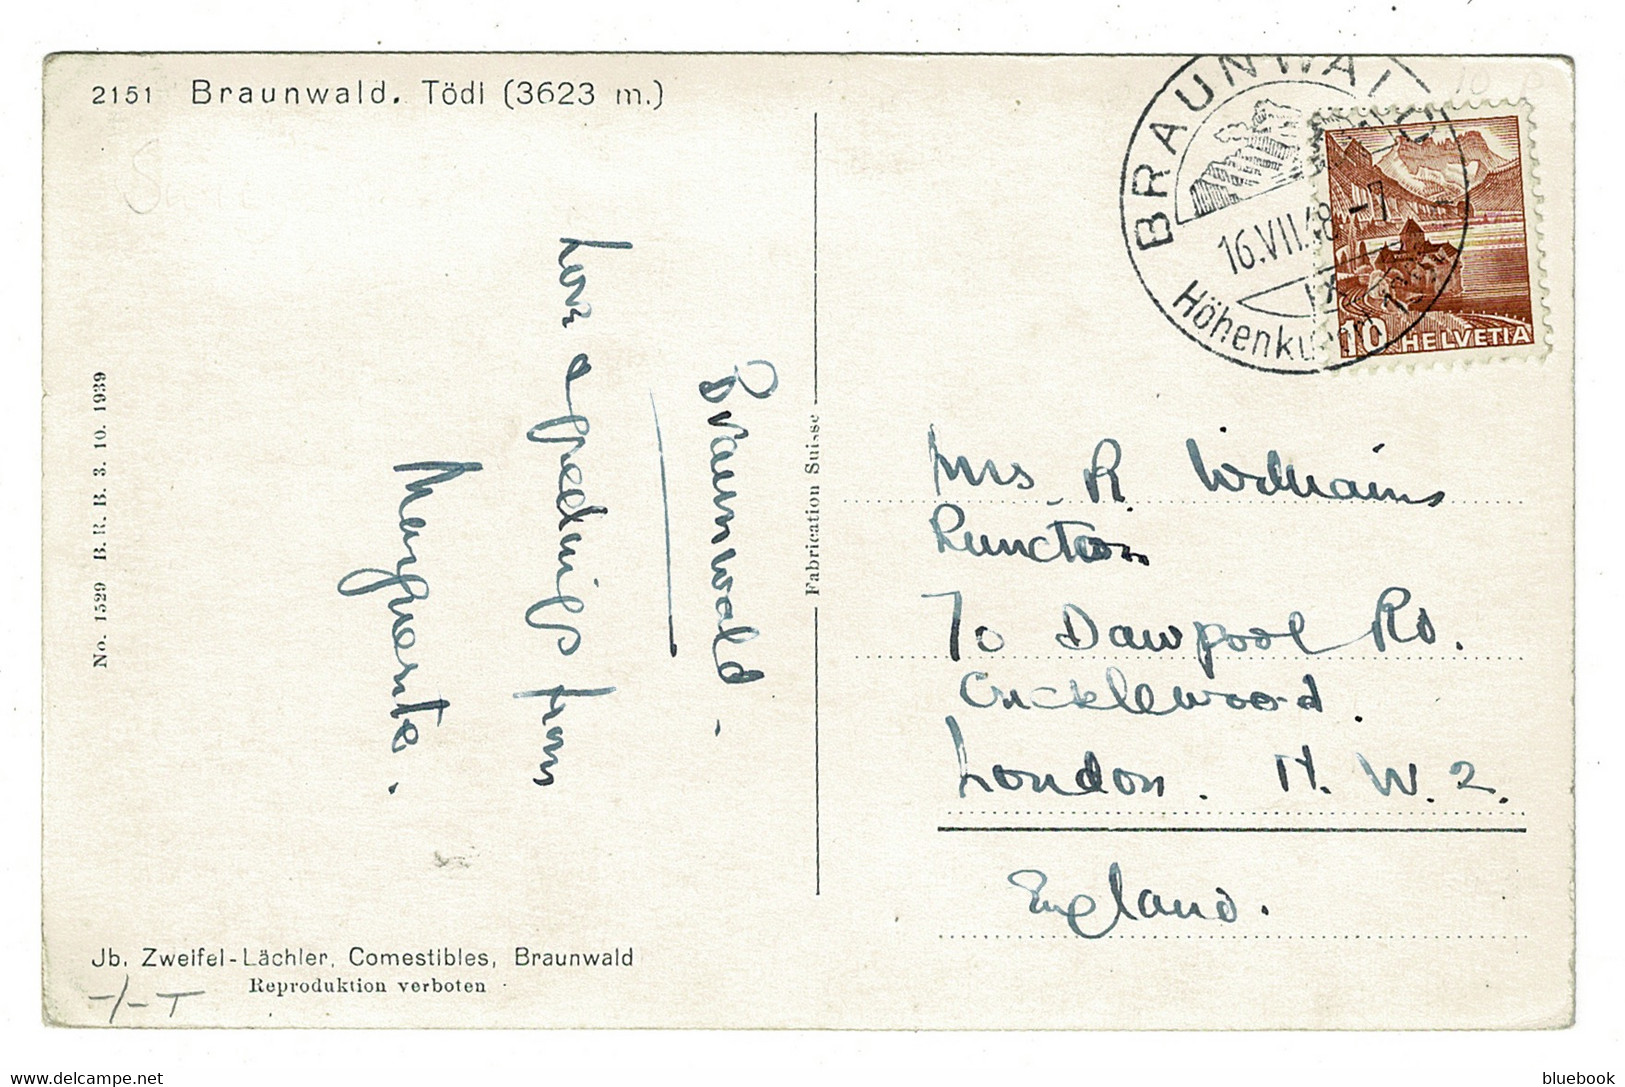 2151 Braunwald. Tödi (3623 m.)
BRAUNWALD
16.VII.48.-7
10 HELVETIA
No. 1529 B. R. B. 3. 10. 1939
Fabrication Suisse
Braunwald.
Love & greetings from
Marguerite.
Mrs R Williams
Runcton
70 Dawpool Rd.
Cricklewood.
London. N. W. 2.
England.
Jb. Zweifel-Lächler, Comestibles, Braunwald
Reproduktion verboten
-/-T
bluebook
www.delcampe.net